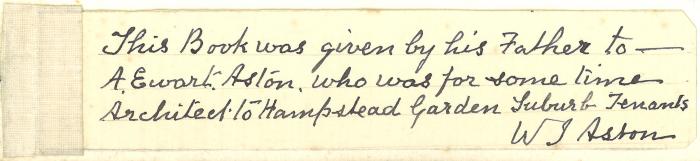 This Book was given by his Father to —
A. Ewart. Aston. who was for some time
Architect to Hampstead Garden Suburb Tenants
W J Aston